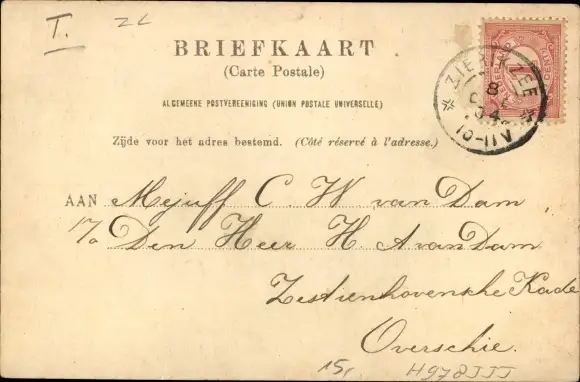 T. ZL
BRIEFKAART
(Carte Postale)
ALGEMEENE POSTVEREENIGING (UNION POSTALE UNIVERSELLE)
Zijde voor het adres bestemd. (Côté réservé à l'adresse.)
ZIERIKZEE
8
10-11V
AAN Mejuff C. W. van Dam
p/a Den Heer H. A van Dam
Zestienhovensche Kade
Overschie.
15,- H978JJJ